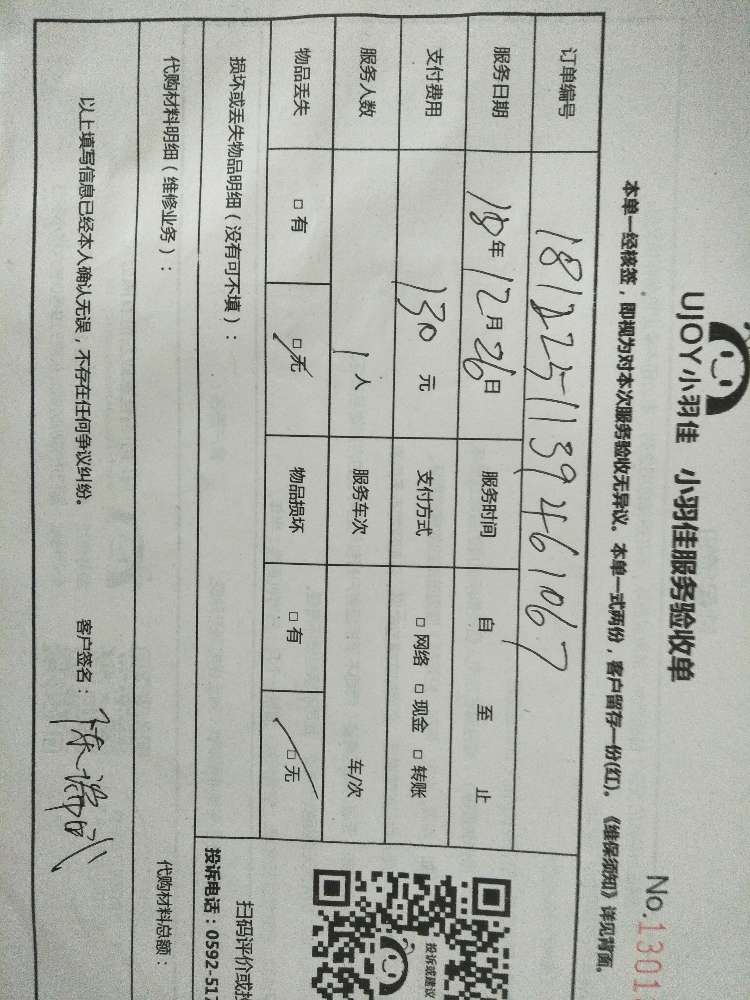 UJOY小羽佳 小羽佳服务验收单
No.1301
本单一经核签，即视为对本次服务验收无异议。本单一式两份，客户留存一份(红)。《维保须知》详见背面。
订单编号 1812251139461067
服务日期 18年12月26日 服务时间 自 至 止
支付费用 130元 支付方式 □网络 □现金 □转账
服务人数 1人 服务车次 车/次
物品丢失 □有 □无 物品损坏 □有 □无
损坏或丢失物品明细（没有可不填）：
投诉或建议
扫码评价或投
投诉电话：0592-517
代购材料明细（维修业务）： 代购材料总额：
以上填写信息已经本人确认无误，不存在任何争议纠纷。 客户签名：